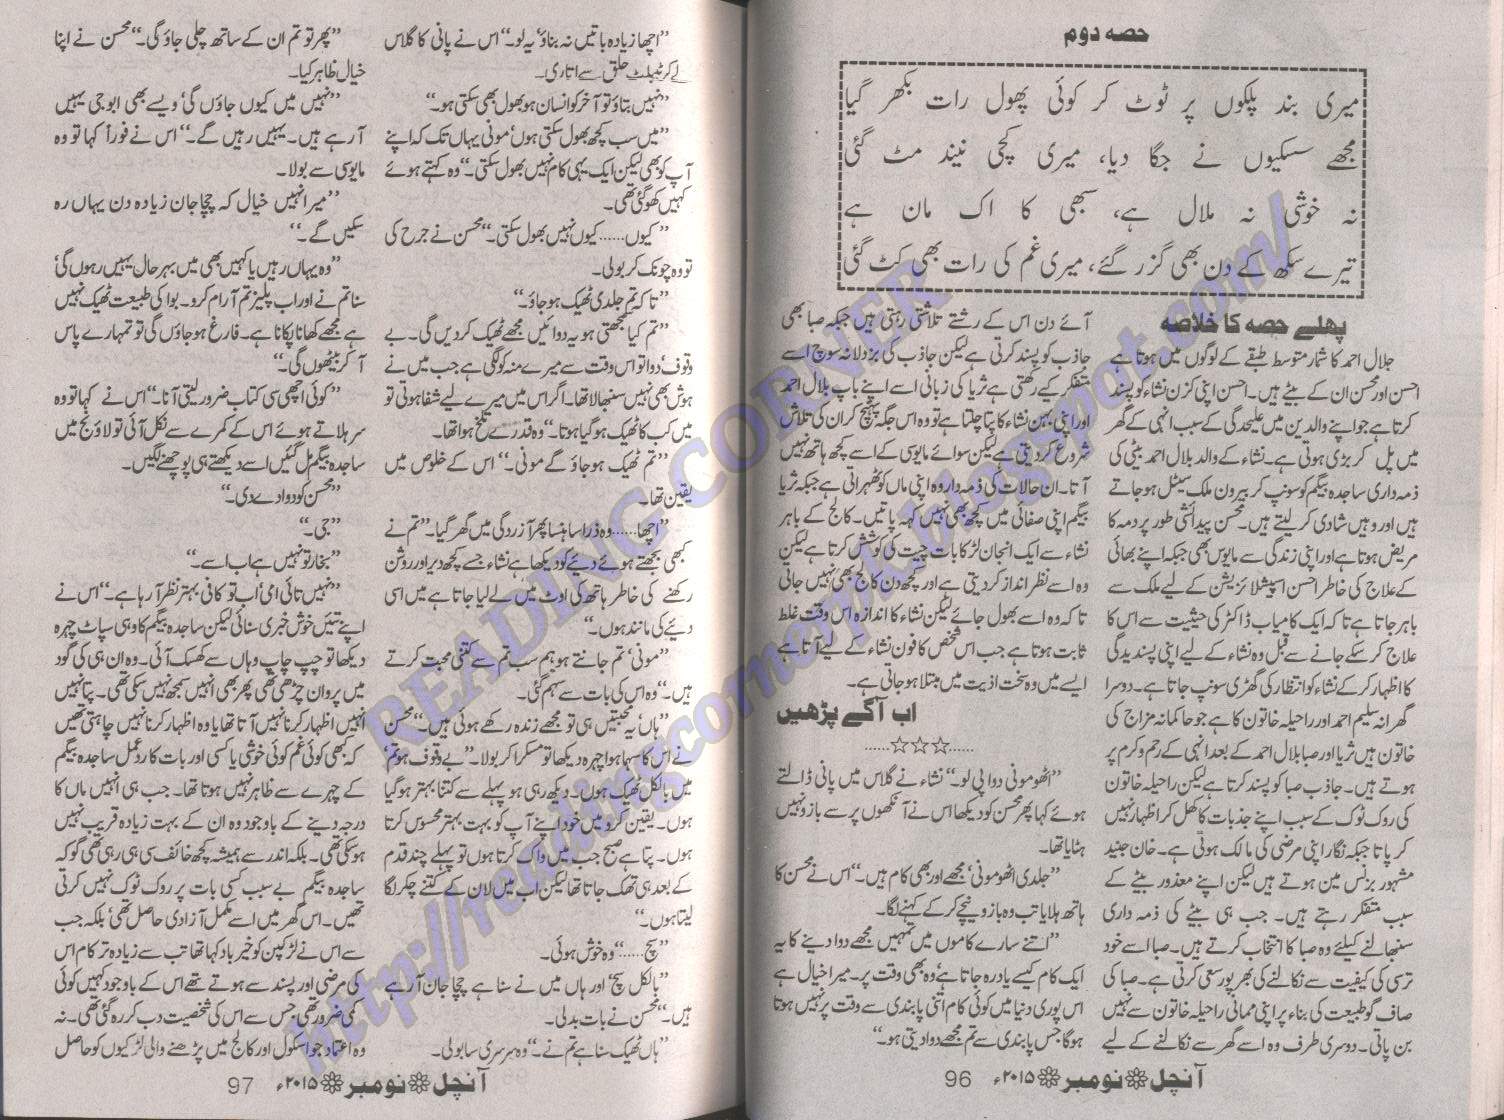 حصہ دوم
میری بند پلکوں پر ٹوٹ کر کوئی پھول رات بکھر گیا
مجھے سسکیوں نے جگا دیا، میری کچی نیند مٹ گئی
نہ خوشی نہ ملال ہے، سبھی کا اک مان ہے
تیرے سکھ کے دن بھی گزر گئے، میری غم کی رات بھی کٹ گئی
پہلے حصہ کا خلاصہ
جلال احمد کا شمار متوسط طبقے کے لوگوں میں ہوتا ہے
احسن اور محسن ان کے بیٹے ہیں۔ احسن اپنی کزن نشاء کو پسند
کرتا ہے جو اپنے والدین میں علیحدگی کے سبب انہی کے گھر
میں پل کر بڑی ہوتی ہے۔ نشاء کے والد بلال احمد بیٹی کی
ذمہ داری ساجدہ بیگم کو سونپ کر بیرون ملک سیٹل ہو جاتے
ہیں اور وہیں شادی کر لیتے ہیں۔ محسن پیدائشی طور پر دمہ کا
مریض ہوتا ہے اور اپنی زندگی سے مایوس بھی جبکہ اپنے بھائی
کے علاج کی خاطر احسن اسپیشلائزیشن کے لیے ملک سے
باہر جاتا ہے تاکہ ایک کامیاب ڈاکٹر کی حیثیت سے اس کا
علاج کر سکے جانے سے قبل وہ نشاء کے لیے اپنی پسندیدگی
کا اظہار کر کے نشاء کو انتظار کی گھڑی سونپ جاتا ہے۔ دوسرا
گھرانہ سلیم احمد اور راحیلہ خاتون کا ہے جو حاکمانہ مزاج کی
خاتون ہیں ثریا اور صبا بلال احمد کے بعد انہی کے رحم و کرم پر
ہوتے ہیں۔ جاذب صبا کو پسند کرتا ہے لیکن راحیلہ خاتون
کی روک ٹوک کے سبب اپنے جذبات کا کھل کر اظہار نہیں
کر پاتا جبکہ نگار اپنی مرضی کی مالک ہوتی ہے۔ خان جنید
مشہور بزنس مین ہوتے ہیں لیکن اپنے معذور بیٹے کے
سبب متفکر رہتے ہیں۔ جب ہی بیٹے کی ذمہ داری
سنبھالنے کیلئے وہ صبا کا انتخاب کرتے ہیں۔ صبا اسے خود
ترسی کی کیفیت سے نکالنے کی بھرپور سعی کرتی ہے۔ صبا کی
صاف گو طبیعت کی بناء پر اپنی ممانی راحیلہ خاتون سے نہیں
بن پاتی۔ دوسری طرف وہ اسے گھر سے نکالنے کے لیے
آئے دن اس کے رشتے تلاشتی رہتی ہیں جبکہ صبا بھی
جاذب کو پسند کرتی ہے لیکن جاذب کی بزدلانہ سوچ اسے
متفکر کیے رکھتی ہے ثریا کی زبانی اسے اپنے باپ بلال احمد
اور اپنی بہن نشاء کا پتا چلتا ہے تو وہ اس جگہ پہنچ کر ان کی تلاش
شروع کر دیتی ہے لیکن سوائے مایوسی کے اسے کچھ ہاتھ نہیں
آتا۔ ان حالات کی ذمہ دار وہ اپنی ماں کو ٹھہراتی ہے جبکہ ثریا
بیگم اپنی صفائی میں کچھ بھی نہیں کہہ پاتیں۔ کالج کے باہر
نشاء سے ایک انجان لڑکا بات چیت کی کوشش کرتا ہے لیکن
وہ اسے نظر انداز کر دیتی ہے اور کچھ دن کالج بھی نہیں جاتی
تاکہ وہ اسے بھول جائے لیکن نشاء کا اندازہ اس وقت غلط
ثابت ہوتا ہے جب اس شخص کا فون نشاء کے لیے آتا ہے
ایسے میں وہ سخت اذیت میں مبتلا ہو جاتی ہے۔
اب آگے پڑھیں
......☆☆☆......
”اٹھو مونی دوا پی لو۔“ نشاء نے گلاس میں پانی ڈالتے
ہوئے کہا پھر محسن کو دیکھا اس نے آنکھوں پر سے بازو نہیں
ہٹایا تھا۔
”جلدی اٹھو مونی‘ مجھے اور بھی کام ہیں۔“ اس نے محسن کا
ہاتھ ہلایا تب وہ بازو نیچے کر کے کہنے لگا۔
”اتنے سارے کاموں میں تمہیں مجھے دوا دینے کا یہ
ایک کام کیسے یاد رہ جاتا ہے‘ وہ بھی وقت پر۔ میرا خیال ہے
اس پوری دنیا میں کوئی کام اتنی پابندی سے وقت پر نہیں ہوتا
ہوگا جس پابندی سے تم مجھے دوا دیتی ہو۔“
آنچل ❁ نومبر ❁ ۲۰۱۵ء 96
”اچھا زیادہ باتیں نہ بناؤ‘ یہ لو۔“ اس نے پانی کا گلاس
لے کر ٹیبلٹ حلق سے اتاری۔
”نہیں بتاؤ تو آخر کو انسان ہو بھول بھی سکتی ہو۔“
”میں سب کچھ بھول سکتی ہوں‘ مونی یہاں تک کہ اپنے
آپ کو بھی لیکن ایک یہی کام نہیں بھول سکتی۔“ وہ کہتے ہوئے
کہیں کھو گئی تھی۔
”کیوں...... کیوں نہیں بھول سکتی۔“ محسن نے جرح کی
تو وہ چونک کر بولی۔
”تاکہ تم جلدی ٹھیک ہو جاؤ۔“
”تم کیا سمجھتی ہو یہ دوائیں مجھے ٹھیک کر دیں گی۔ بے
وقوف‘ دوا تو اس وقت سے میرے منہ کو لگی ہے جب میں نے
ہوش بھی نہیں سنبھالا تھا۔ اگر اس میں میرے لیے شفا ہوتی تو
میں کب کا ٹھیک ہو گیا ہوتا۔“ وہ قدرے تلخ ہوا تھا۔
”تم ٹھیک ہو جاؤ گے مونی۔“ اس کے خلوص میں
یقین تھا۔
”اچھا...... وہ ذرا سا ہنسا پھر آزردگی میں گھر گیا۔ ”تم نے
کبھی بجھتے ہوئے دیئے کو دیکھا ہے نشاء جسے کچھ دیر اور روشن
رکھنے کی خاطر ہاتھ کی اوٹ میں لے لیا جاتا ہے میں اسی
دیئے کی مانند ہوں۔“
”مونی‘ تم جانتے ہو ہم سب تم سے کتنی محبت کرتے
ہیں۔“ وہ اس کی بات سے سہم گئی۔
”ہاں‘ یہ محبتیں ہی تو مجھے زندہ رکھے ہوئی ہیں۔“ محسن
نے اس کا سہما ہوا چہرہ دیکھا تو مسکرا کر بولا۔ ”بے وقوف ہو تم‘
میں بالکل ٹھیک ہوں۔ دیکھ رہی ہو پہلے سے کتنا بہتر ہو گیا
ہوں۔ یقین کرو میں خود اپنے آپ کو بہت بہتر محسوس کرتا
ہوں۔ پتا ہے صبح جب میں واک کرتا ہوں تو پہلے چند قدم
کے بعد ہی تھک جاتا تھا لیکن اب میں لان کے کتنے چکر لگا
لیتا ہوں۔“
”سچ......“ وہ خوش ہوئی۔
”بالکل سچ‘ اور ہاں میں نے سنا ہے چچا جان آ رہے
ہیں۔“ محسن نے بات بدلی۔
”ہاں ٹھیک سنا ہے تم نے۔“ وہ سرسری سا بولی۔
”پھر تو تم ان کے ساتھ چلی جاؤ گی۔“ محسن نے اپنا
خیال ظاہر کیا۔
”نہیں میں کیوں جاؤں گی‘ ویسے بھی ابو جی یہیں
آ رہے ہیں۔ یہیں رہیں گے۔“ اس نے فوراً کہا تو وہ
مایوسی سے بولا۔
”میرا نہیں خیال کہ چچا جان زیادہ دن یہاں رہ
سکیں گے۔“
”وہ یہاں رہیں یا کہیں بھی میں بہرحال یہیں رہوں گی‘
سنا تم نے اور اب پلیز تم آرام کرو۔ بوا کی طبیعت ٹھیک نہیں
ہے مجھے کھانا پکانا ہے۔ فارغ ہو جاؤں گی تو تمہارے پاس
آ کر بیٹھوں گی۔“
”کوئی اچھی سی کتاب ضرور لیتی آنا۔“ اس نے کہا تو وہ
سر ہلاتے ہوئے اس کے کمرے سے نکل آئی تو لاؤنج میں
ساجدہ بیگم مل گئیں اسے دیکھتے ہی پوچھنے لگیں۔
”محسن کو دوا دے دی۔“
”جی۔“
”بخار تو نہیں ہے اب اسے۔“
”نہیں تائی امی‘ اب تو کافی بہتر نظر آ رہا ہے۔“ اس نے
اپنے تئیں خوش خبری سنائی لیکن ساجدہ بیگم کا وہی سپاٹ چہرہ
دیکھا تو چپ چاپ وہاں سے کھسک آئی۔ وہ ان ہی کی گود
میں پروان چڑھی تھی پھر بھی انہیں سمجھ نہیں سکی تھی۔ پتا نہیں
انہیں اظہار کرنا نہیں آتا تھا یا وہ اظہار کرنا نہیں چاہتی تھیں
کہ بھی کوئی غم کوئی خوشی یا کسی اور بات کا ردعمل ساجدہ بیگم
کے چہرے سے ظاہر نہیں ہوتا تھا۔ جب ہی انہیں ماں کا
درجہ دینے کے باوجود وہ ان کے بہت زیادہ قریب نہیں
ہو سکی تھی۔ بلکہ اندر سے ہمیشہ کچھ خائف سی ہی رہی تھی گو کہ
ساجدہ بیگم بے سبب کسی بات پر روک ٹوک نہیں کرتی
تھیں۔ اس گھر میں اسے مکمل آزادی حاصل تھی‘ بلکہ جب
سے اس نے لڑکپن کو خیرباد کہا تھا تب سے زیادہ تر کام اس
کی مرضی اور پسند سے ہوتے تھے اس کے باوجود کہیں کوئی
کمی ضرور تھی‘ جس سے اس کی شخصیت دب کر رہ گئی تھی۔ نہ
وہ اعتماد جو اسکول اور کالج میں پڑھنے والی لڑکیوں کو حاصل
آنچل ❁ نومبر ❁ ۲۰۱۵ء 97
READING CORNER
http://readingcornerpk.blogspot.com/